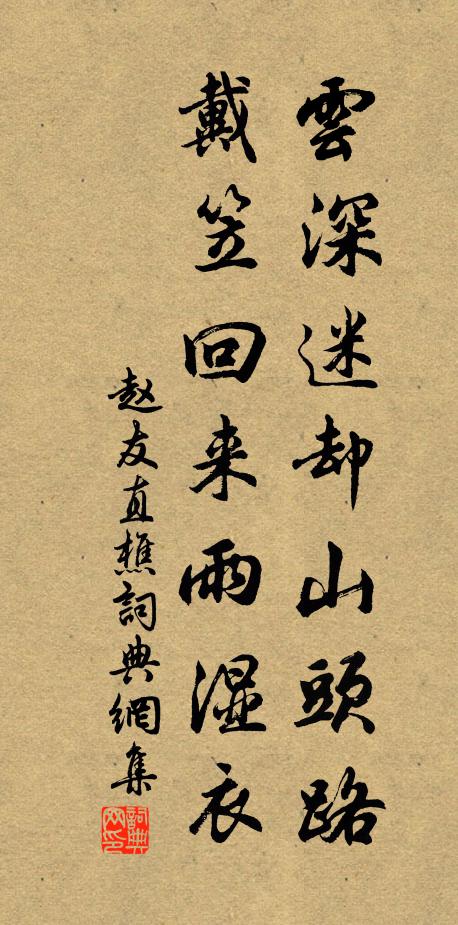 雲深迷却山頭路
戴笠回来雨湿衣
赵友直樵詞典網集
詞典网印